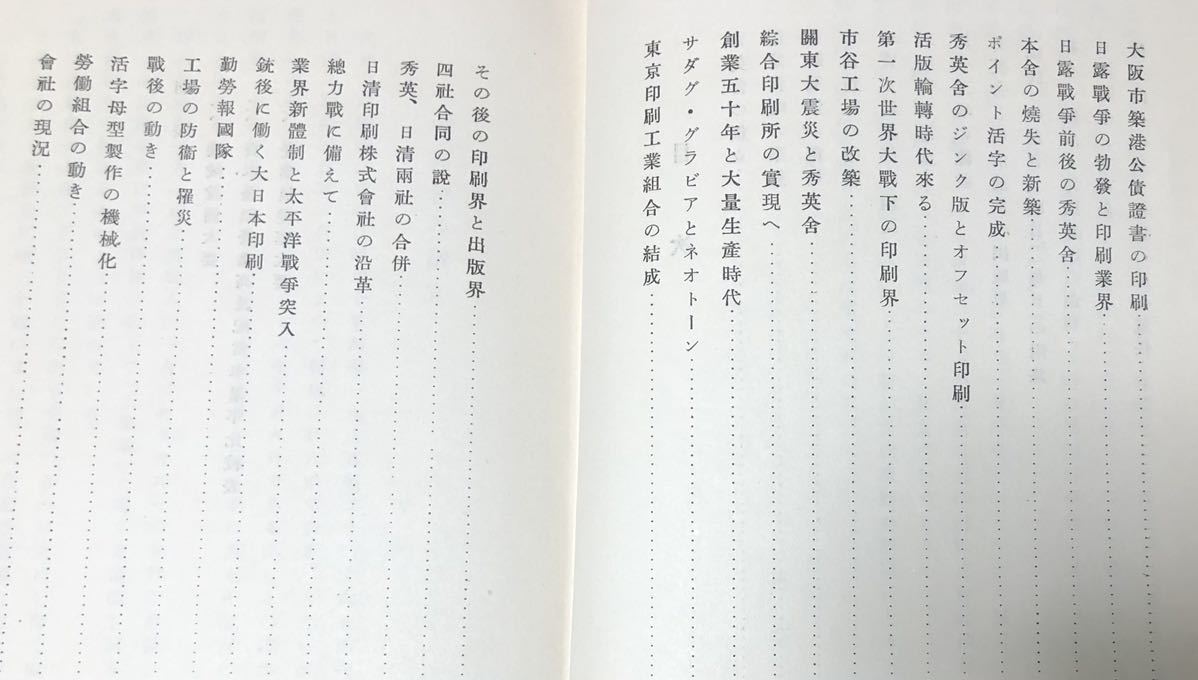 大阪市築港公債證書の印刷
日露戰爭の勃發と印刷業界
日露戰爭前後の秀英舍
本舍の燒失と新築
ポイント活字の完成
秀英舍のジンク版とオフセット印刷
活版輪轉時代來る
第一次世界大戰下の印刷界
市谷工場の改築
關東大震災と秀英舍
綜合印刷所の實現へ
創業五十年と大量生產時代
サダグ・グラビアとネオトーン
東京印刷工業組合の結成
その後の印刷界と出版界
四社合同の說
秀英、日淸兩社の合併
日淸印刷株式會社の沿革
總力戰に備えて
業界新體制と太平洋戰爭突入
銃後に働く大日本印刷
勤勞報國隊
工場の防衞と罹災
戰後の動き
活字母型製作の機械化
勞働組合の動き
會社の現況